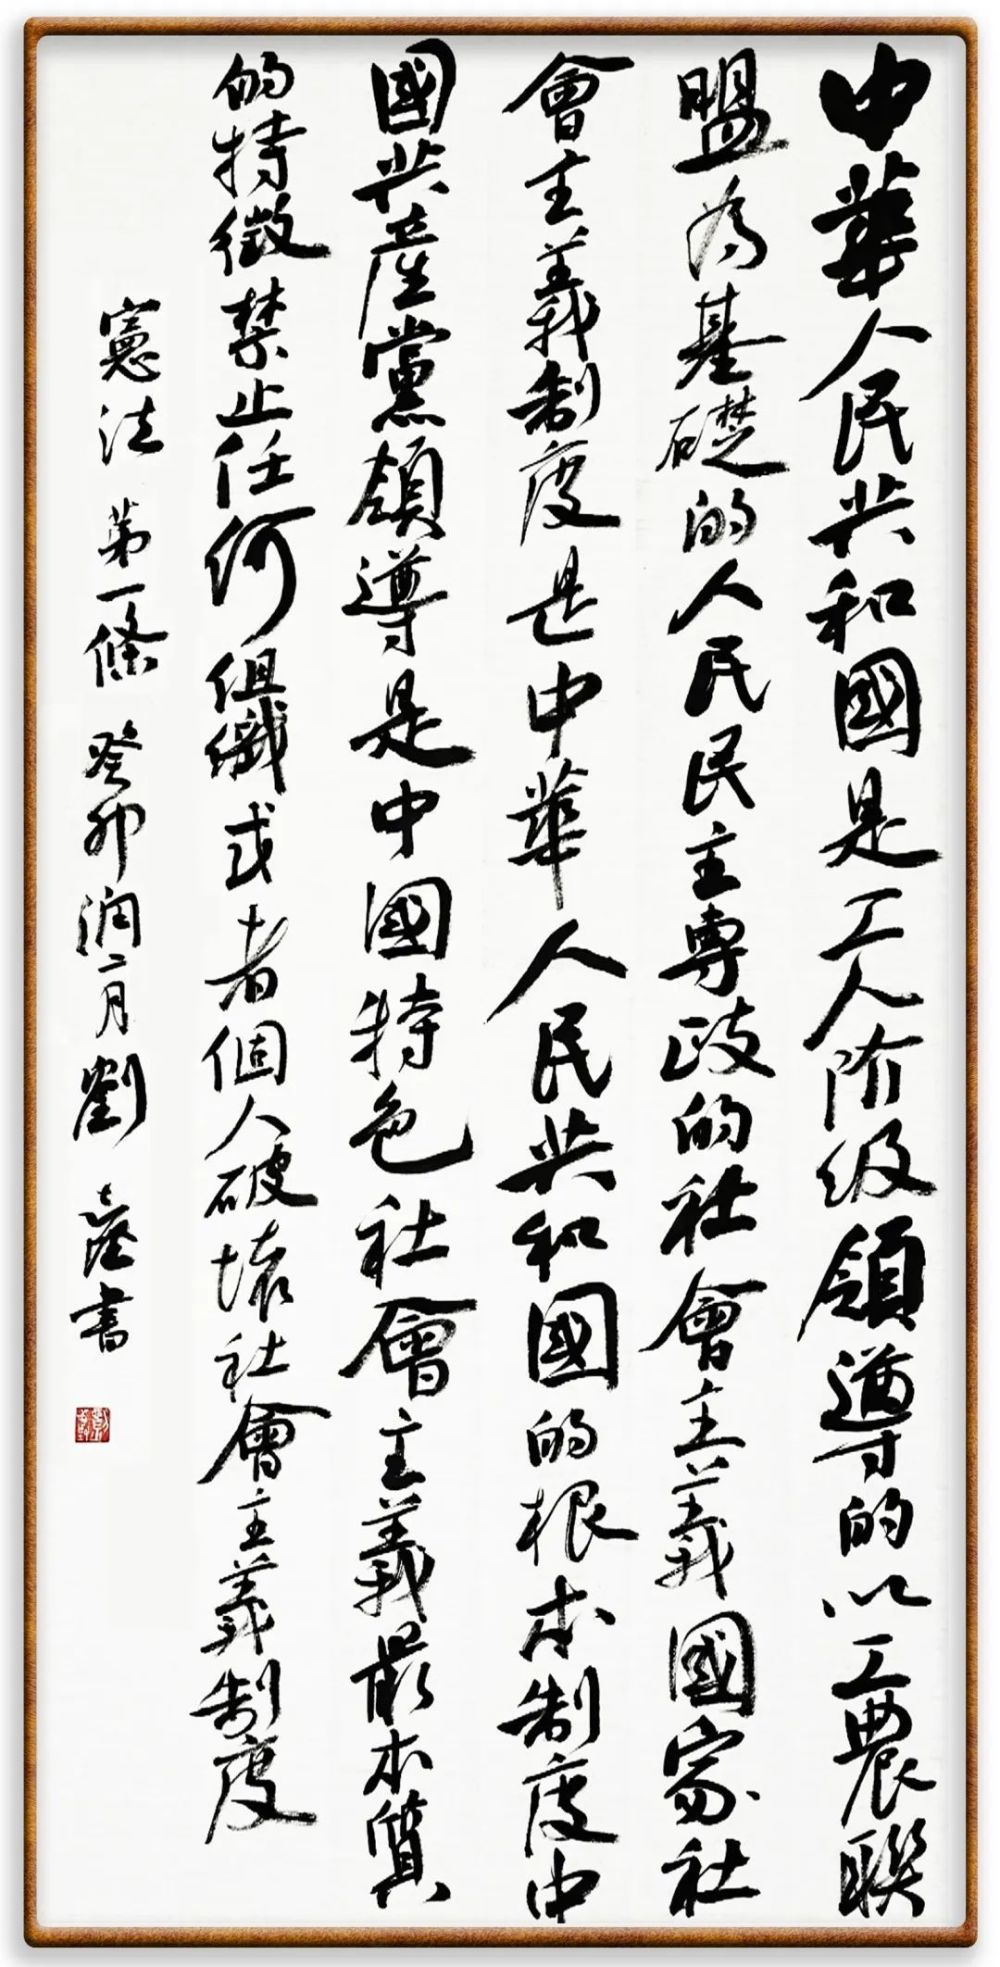 中華人民共和國是工人阶级領導的以工農聯
盟為基礎的人民民主專政的社會主義國家社
會主義制度是中華人民共和國的根本制度中
國共產黨領導是中國特色社會主義最本質
的特徵禁止任何组織或者個人破壞社會主義制度
憲法 第一條 癸卯润二月劉 书